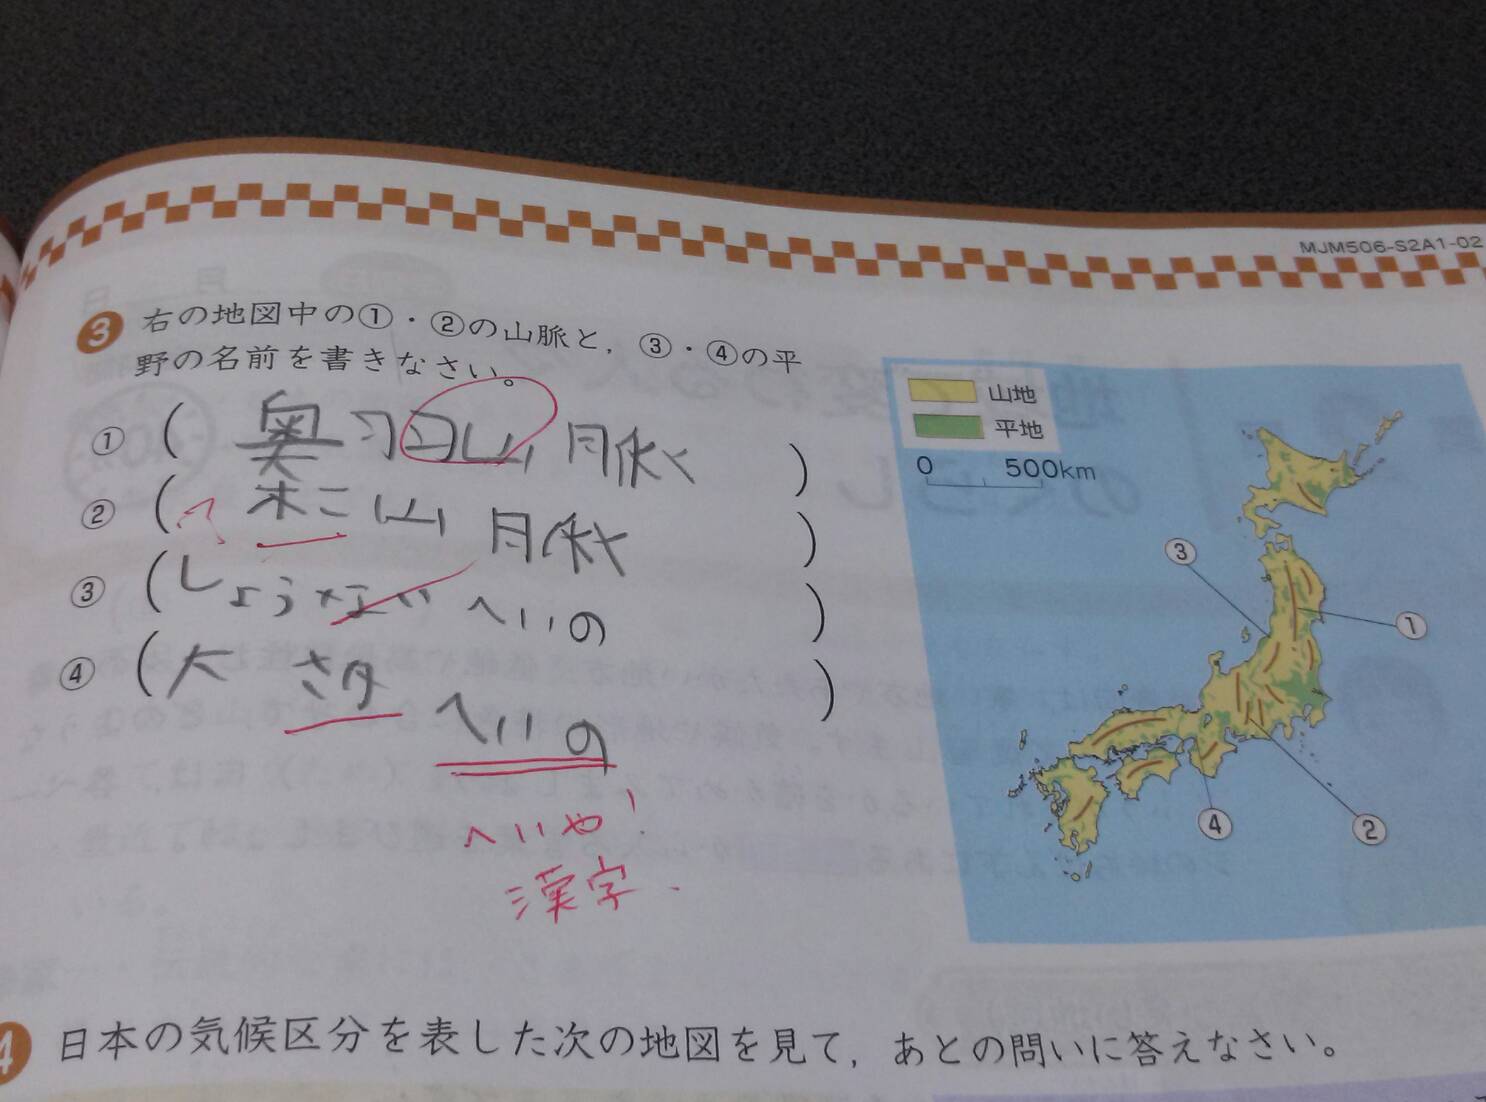 MJM506-S2A1-02
3 右の地図中の①・②の山脈と，③・④の平
野の名前を書きなさい。
① ( 奥羽山脈 )
② ( 木ニ山脈 )
③ ( しょうない へいの )
④ ( 大さか へいの )
へいや!
漢字.
山地
平地
0 500km
③
①
④
②
4 日本の気候区分を表した次の地図を見て，あとの問いに答えなさい。